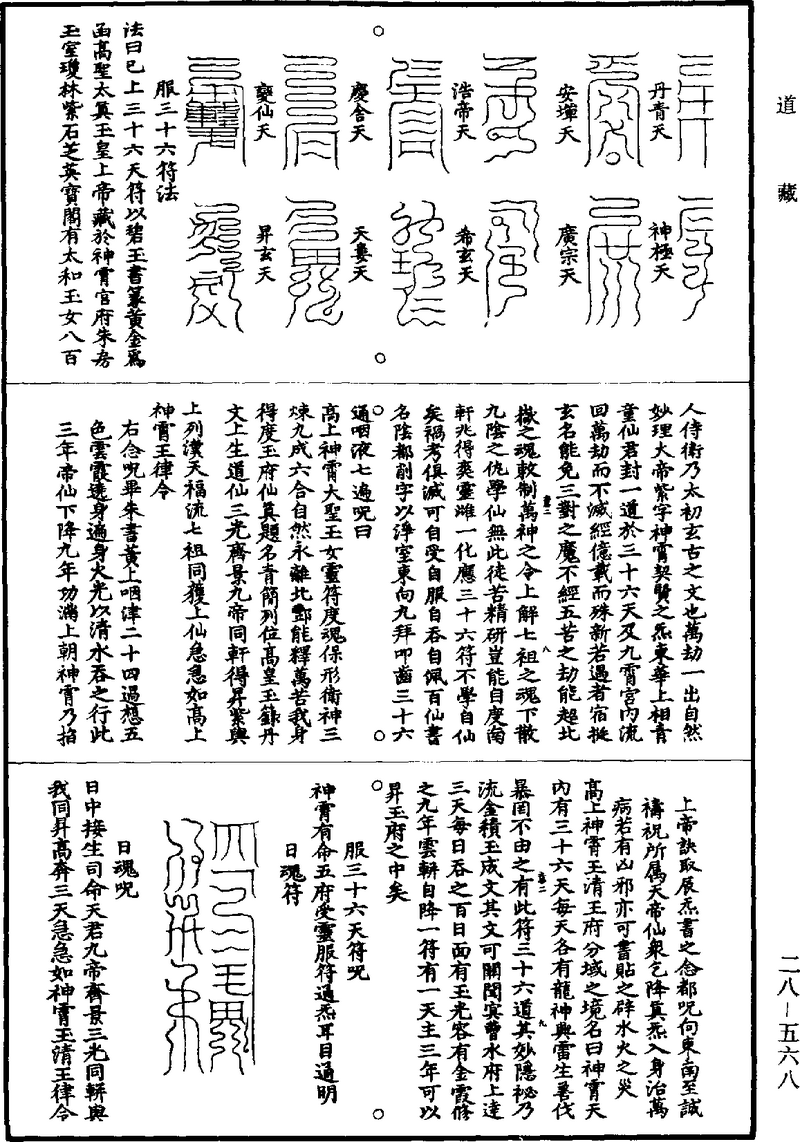 道藏
丹青天
神極天
安墠天
廣宗天
浩帝天
希玄天
慶舍天
天婁天
變仙天
昇玄天
服三十六符法
法曰已上三十六天符以碧玉書篆黃金爲
函高聖太眞玉皇上帝藏於神霄宮府朱房
玉室瓊林紫石芝英寶閣有太和玉女八百
人侍衛乃太初玄古之文也萬劫一出自然
妙理大帝紫字神霄契賢之炁東華上相青
童仙君封一道於三十六天及九霄宮内流
回萬劫而不滅經億載而殊新若遇者宿挺
玄名能免三對之魔不經五苦之劫能超北
嶽之魂敕制萬神之令上解七祖之魂下散
九陰之仇學仙無此徒苦精研豈能自度南
軒兆得奕靈雌一化應三十六符不學自仙
矣禍考俱滅可自受自服自吞自佩百仙書
名陰都削字以淨室東向九拜叩齒三十六
通咽液七遍呪曰
高上神霄大聖玉女靈符度魂保形衛神三
煉九成六合自然永離北酆能釋萬苦我身
得度玉府仙眞題名青簡列位高皇玉籙丹
文上生道仙三光齊景九帝同軒得昇紫輿
上列漢天福流七祖同獲上仙急急如高上
神霄王律令
右念呪畢朱書黃上咽津二十四過想五
色雲霞遶身遍身火光以清水吞之行此
三年帝仙下降九年功滿上朝神霄乃掐
上帝訣取辰炁書之念都呪向東南至誠
禱祝所属天帝仙衆乞降眞炁入身治萬
病若有凶邪亦可書貼之辟水火之災
高上神霄玉清王府分域之境名曰神霄天
内有三十六天每天各有龍神興雷生暑伐
暴罔不由之有此符三十六道其妙隱祕乃
流金積玉成文其文可關閱冥曹水府上達
三天每日吞之百日面有玉光容有金霞修
之九年雲軿自降一符有一天主三年可以
昇玉府之中矣
服三十六天符呪
神霄有命五府受靈服符通炁耳目通明
日魂符
日魂呪
日中接生司命天君九帝齊景三光同軿與
我同昇高奔三天急急如神霄玉清王律令
二八-五六八